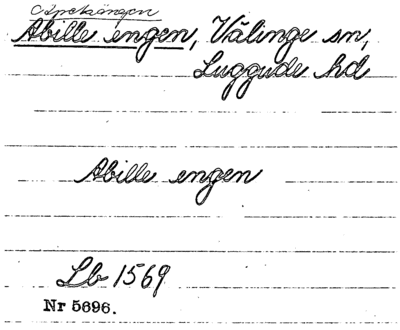 Abille engen, Välinge sn,
Luggude hd
Abille engen
Lb 1569
Nr 5696.